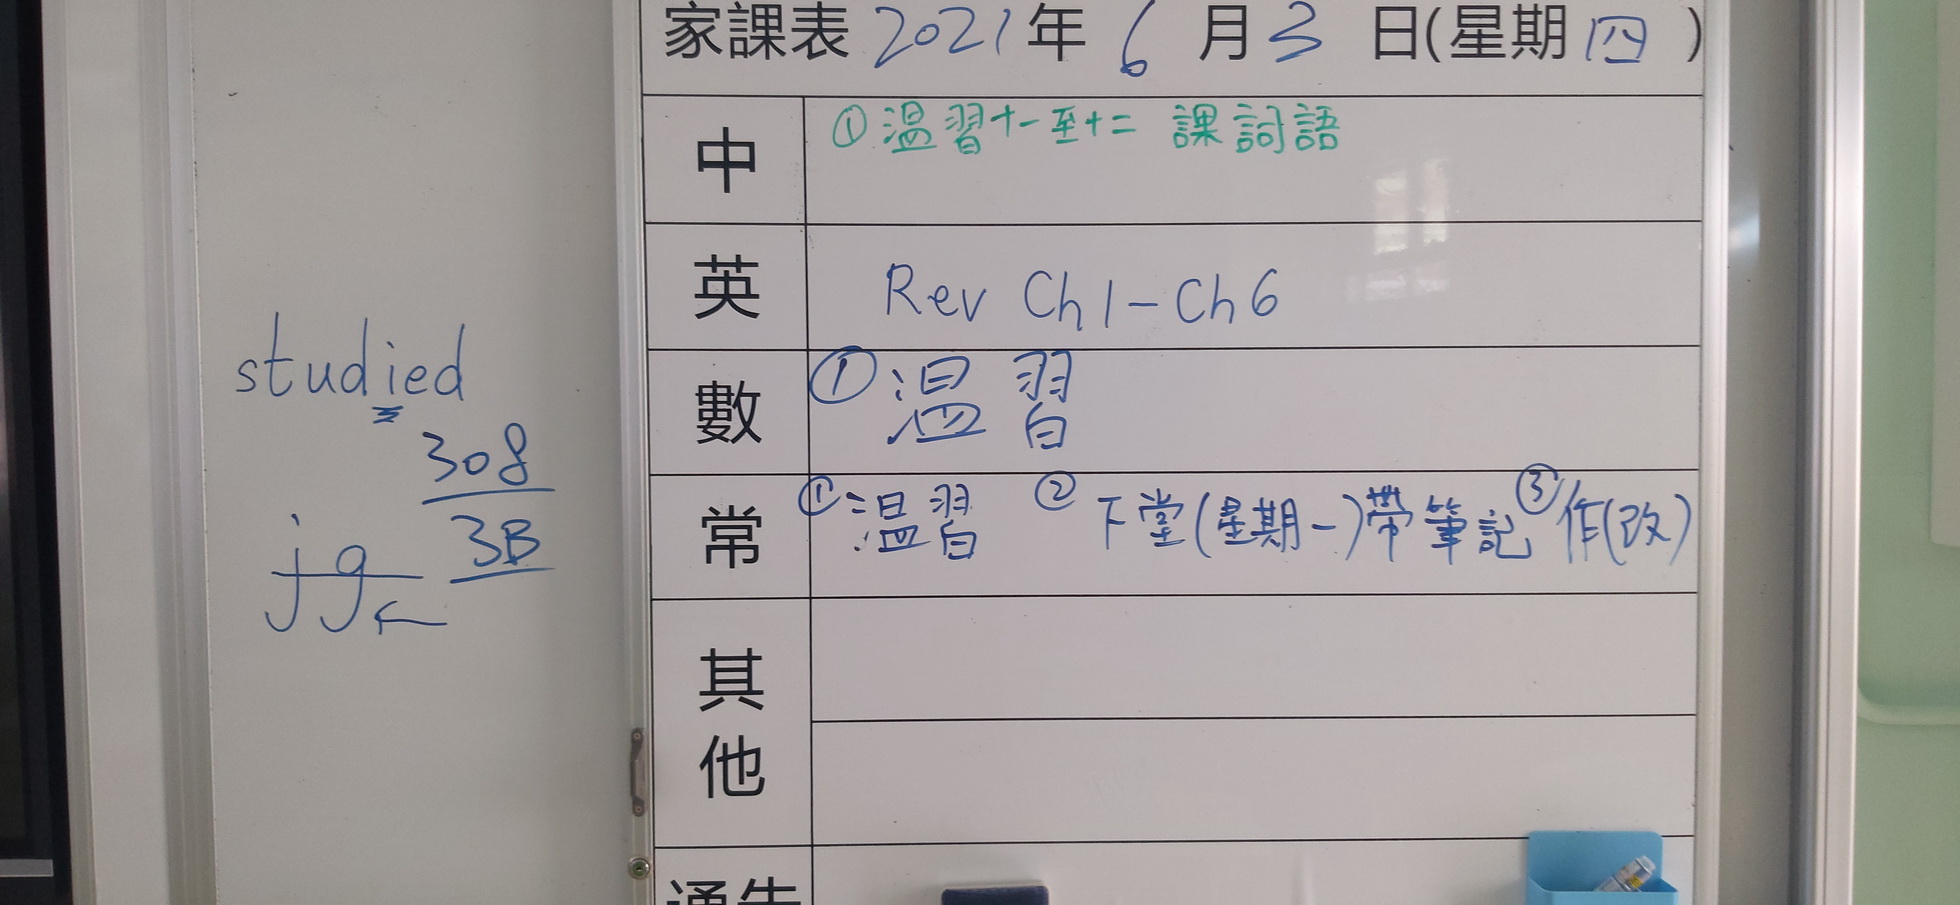 家課表 2021年 6月3日(星期四)
中 ①溫習十一至十二課詞語
英 Rev Ch1-Ch6
數 ①溫習
常 ①溫習 ②下堂(星期一)帶筆記 ③作(改)
其他
通告
studied
308
3B
jg